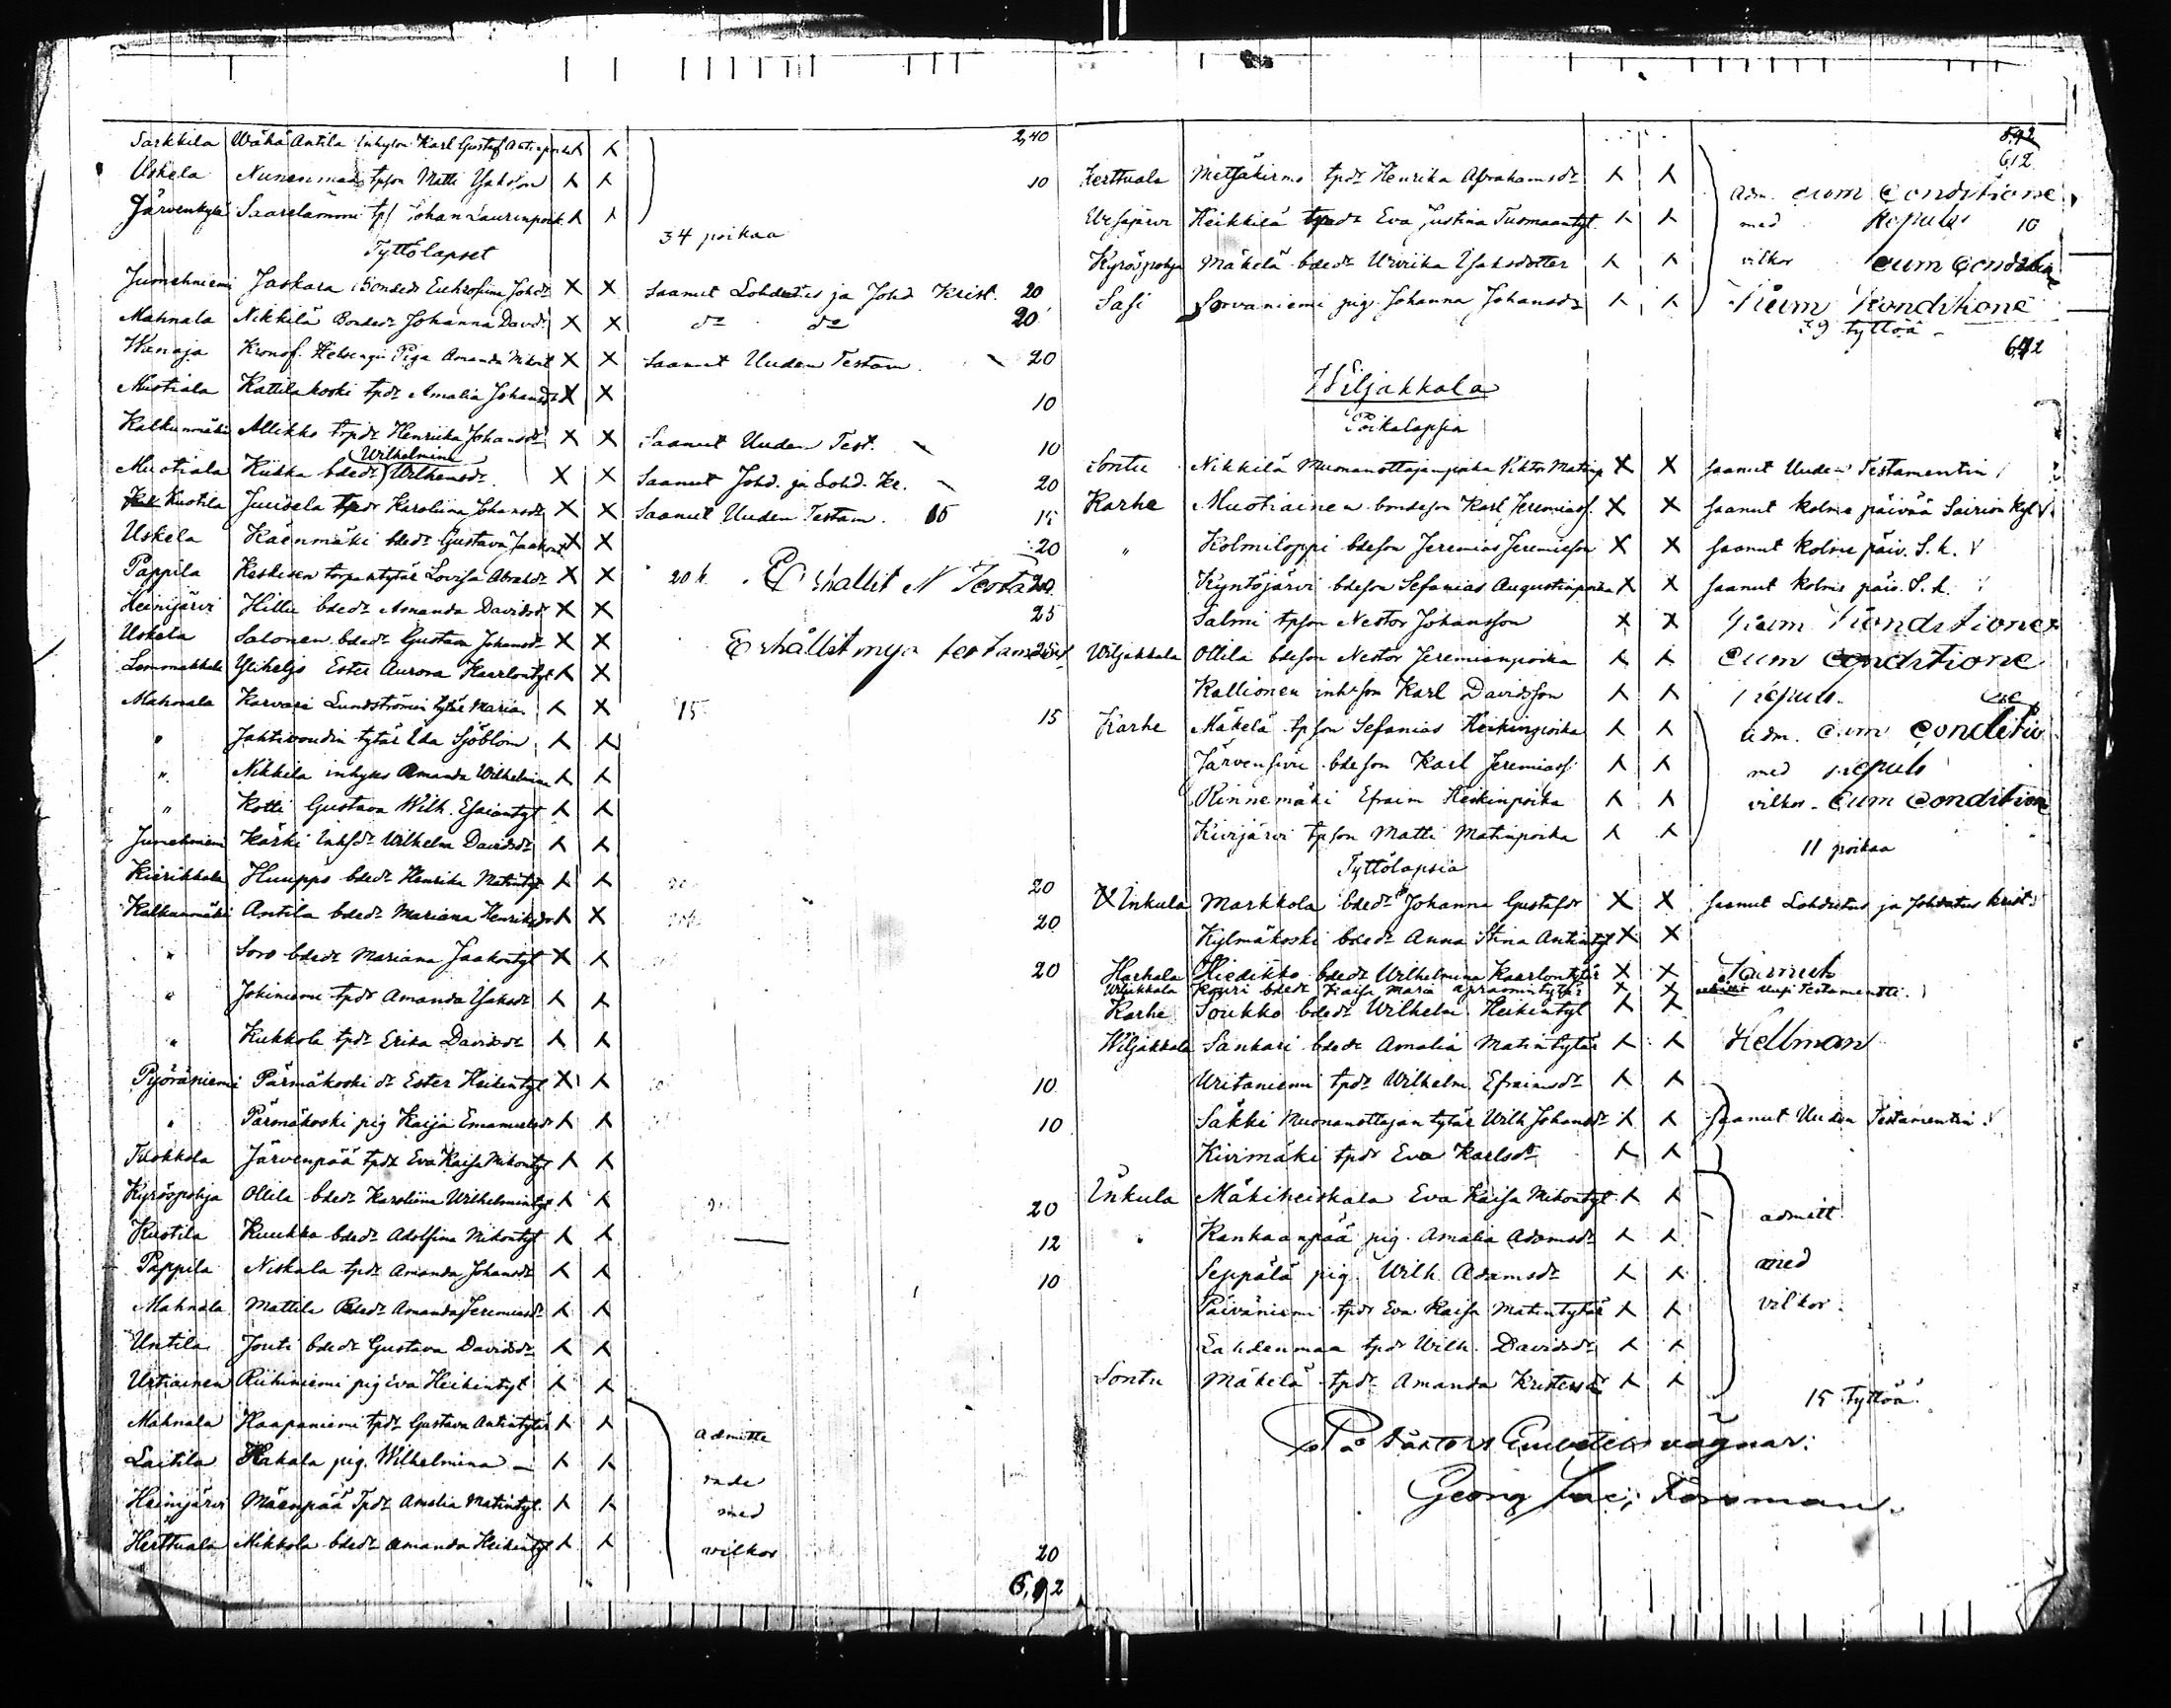 2,40
Sarkkila Wähä Antila Inhyson Karl Gustaf Antinpoika
Uskela Nunenmaa tpson Matti Isaksson 10
Järvenkylä Saarelammi tpf Johan Laurinpoik.
34 poikaa
Tyttölapset
Jumehniemi Jaskara Bondedr Eufrosina Johdr X X Saanut Lohdutus ja Johd Krist. 20
Mahnala Nikkilä Bondedr Johanna Davd. X X do do 20
Hanaja Kronof. Helsingin Piga Amanda Mikont X X Saanut Uuden Testam. 20
Mustiala Kattilakoski tpdr Amalia Johansdr X X 10
Kalkunmäki Allikko torpdr Henriika Johansdr X X Saanut Uuden Test. 10
Wilhelmina
Muotiala Kukka bdedr Wilhemsdr. X X Saanut Johd. ja Lohd. Kr. 20
Kustila Juusela tpdr Karoliina Johansdr X X Saanut Uuden Testam. 15 15
Uskela Käenmäki bdedr Gustava Jaakont X X 20
Pappila Keskisen torpantytär Lovisa Abrahdr X X 20 k. Erhallit N Testa 20
Heinijärvi Hillu bdedr Amanda Davidsdr X X 25
Uskela Salonen bdedr Gustava Johansdr X X Erhållit nya testament 25
Lemmakkala Yliheljo Ester Aurora Kaarlontyt X
Mahnala Karvari Lundströmin tytär Maria X 15 15
" Jahtivoudin tytär Ida Sjöblom
" Nikkila inhyses Amanda Wilhelmina
" Kotti Gustava Wilh. Esaiantyt
Jumehniemi Kärki Inhsdr Wilhelm Davidsdr
Kierikkala Huuppo bdedr Henrika Matintyt 20
Kalkunmäki Antila bdedr Mariana Henriksdr X 20
" Soro bdedr Mariana Jaakontyt X 20
" Jokiniemi tpdr Amanda Isaksdr
" Kukkola tpdr Erika Davidsdr
Pyöräniemi Pärmäkoski dr Ester Heikintyt X 10
" Pärmäkoski pig Kaija Emanuelsdr 10
Tuokkola Järvenpää tpdr Eva Kaisa Mikontyt
Kyröspohja Ollila bdedr Karoliina Wilhelmintyt 20
Kustila Kuukka bdedr Adolfina Mikontyt 12
Pappila Niskala tpdr Amanda Johansdr 10
Mahnala Mattila Bdedr Amanda Jeremiasdr
Untila Jouti bdedr Gustava Davidsdr
Urtiainen Riihiniemi pig Eva Heikintyt
Mahnala Haapaniemi tpdr Gustava Antintytär admitte
Laitila Hakala pig. Wilhelmina — rade
Heinijärvi Mäenpää Tpdr Amalia Matintyt. med
Herttuala Mikkola bdedr Amanda Heikintyt vilkor 20
6,12
6,12
Herttuala Metsäkirmo tpdr Henrika Abrahamsdr adm. cum Conditione
Wesajärvi Heikkilä tpdr Eva Justina Tuomaantyt. med Repuls 10
Kyröspohja Mäkelä bdedr Urviika Isaksdotter vilkor cum Condition
Sasi Sorvaniemi pig. Johanna Johansdr Kum Konditione
39 tyttöä
6,12
Wiljakkala
Poikalapsia
Sontu Nikkilä Muonanottajanpoika Viktor Matinp X X saanut Uuden Testamentin
Karhe Muotiainen bondeson Karl Jeremiass. X X saanut kolme päivää Sairion kyl
" Kolmiloppi bdeson Jeremias Jeremiesson X X saanut kolme päiv. S. k.
Kyntöjärvi bdeson Sefanias Augustinpoika X X saanut kolme päiv. S. k.
Salmi tpson Nestor Johansson X X Kum Konditione
Wiljakkala Ollila bdeson Nestor Jeremianpoika Cum Conditione
Kallionen inhson Karl Davidsson repuls.
Karhe Mäkelä tpson Sefanias Heikinpoika adm. cum Conditio
Järvensivu bdeson Karl Jeremiass. med repuls
Rinnemäki Efraim Heikinpoika vilkor. Cum Condition
Kivijärvi tpson Matti Matinpoika
11 poikaa
Tyttölapsia
X Inkula Markkola bdedr Johanna Gustafsdr X X saanut Lohdutus ja Johdatus Krist.
Kylmäkoski bdedr Anna Stina Antintyt X X
Harhala Hiedikko bdedr Wilhelmina Kaarlontytär X X
Wiljakkala Kouri bdedr Kaisa Maria apraamintytär X X Uusi Testamentti.
Karhe Soukko bdedr Wilhelm. Heikintyt
Wiljakkala Sankari bdedr Amalia Matintytär Hellman
Uritaniemi tpdr Wilhelm. Efraimsdr
Säkki Muonanottajan tytär Wilh Johansdr saanut Uuden Testamentin
Kivimäki tpdr Eva Karlsdr
Inkula Mäkiheiskala Eva Kaisa Mikontyt. admitt
" Kankaanpää pig. Amalia Adamsdr
Seppälä pig. Wilh. Adamsdr med
Päiväniemi tpdr Eva Kaisa Matintytär vilkor.
Lahdenmaa tpdr Wilh. Davidsdr
Sontu Mäkelä tpdr Amanda Kristersdr
15 tyttöä.
På Pastors Embetets vägnar:
Georg Forsman.